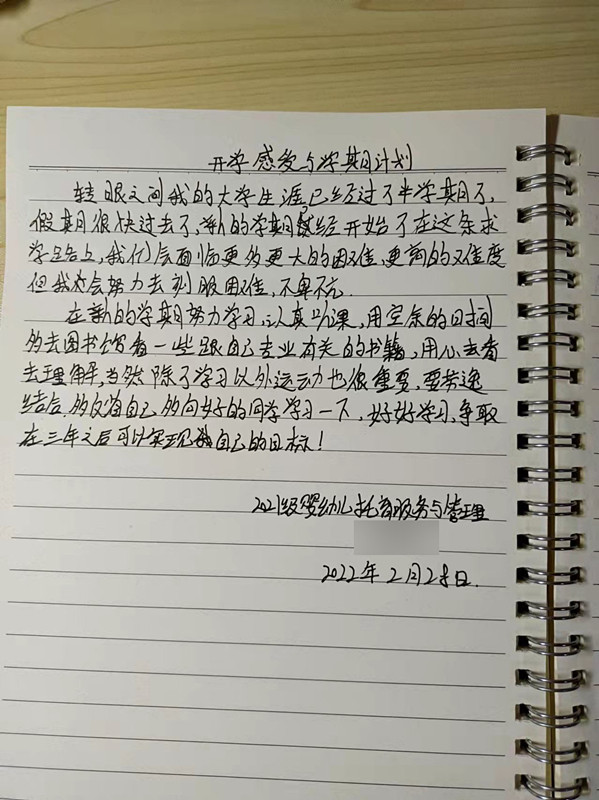 开学感受与学期计划
转眼之间我的大学生涯已经过了半学期了,
假期很快过去了,新的学期已经开始了在这条求
学路上,我们会面临更多更大的困难,更高的难度
但我会努力去刻服困难,不卑不亢.
在新的学期努力学习,认真听课,用空余的时间
多去图书馆看一些跟自己专业有关的书籍,用心去看
去理解,当然除了学习以外运动也很重要,要劳逸
结合,多反省自己,多向好的同学学习一下,好好学习,争取
在三年之后可以实现自己的目标!
2021级婴幼儿托育服务与管理
2022年2月28日.